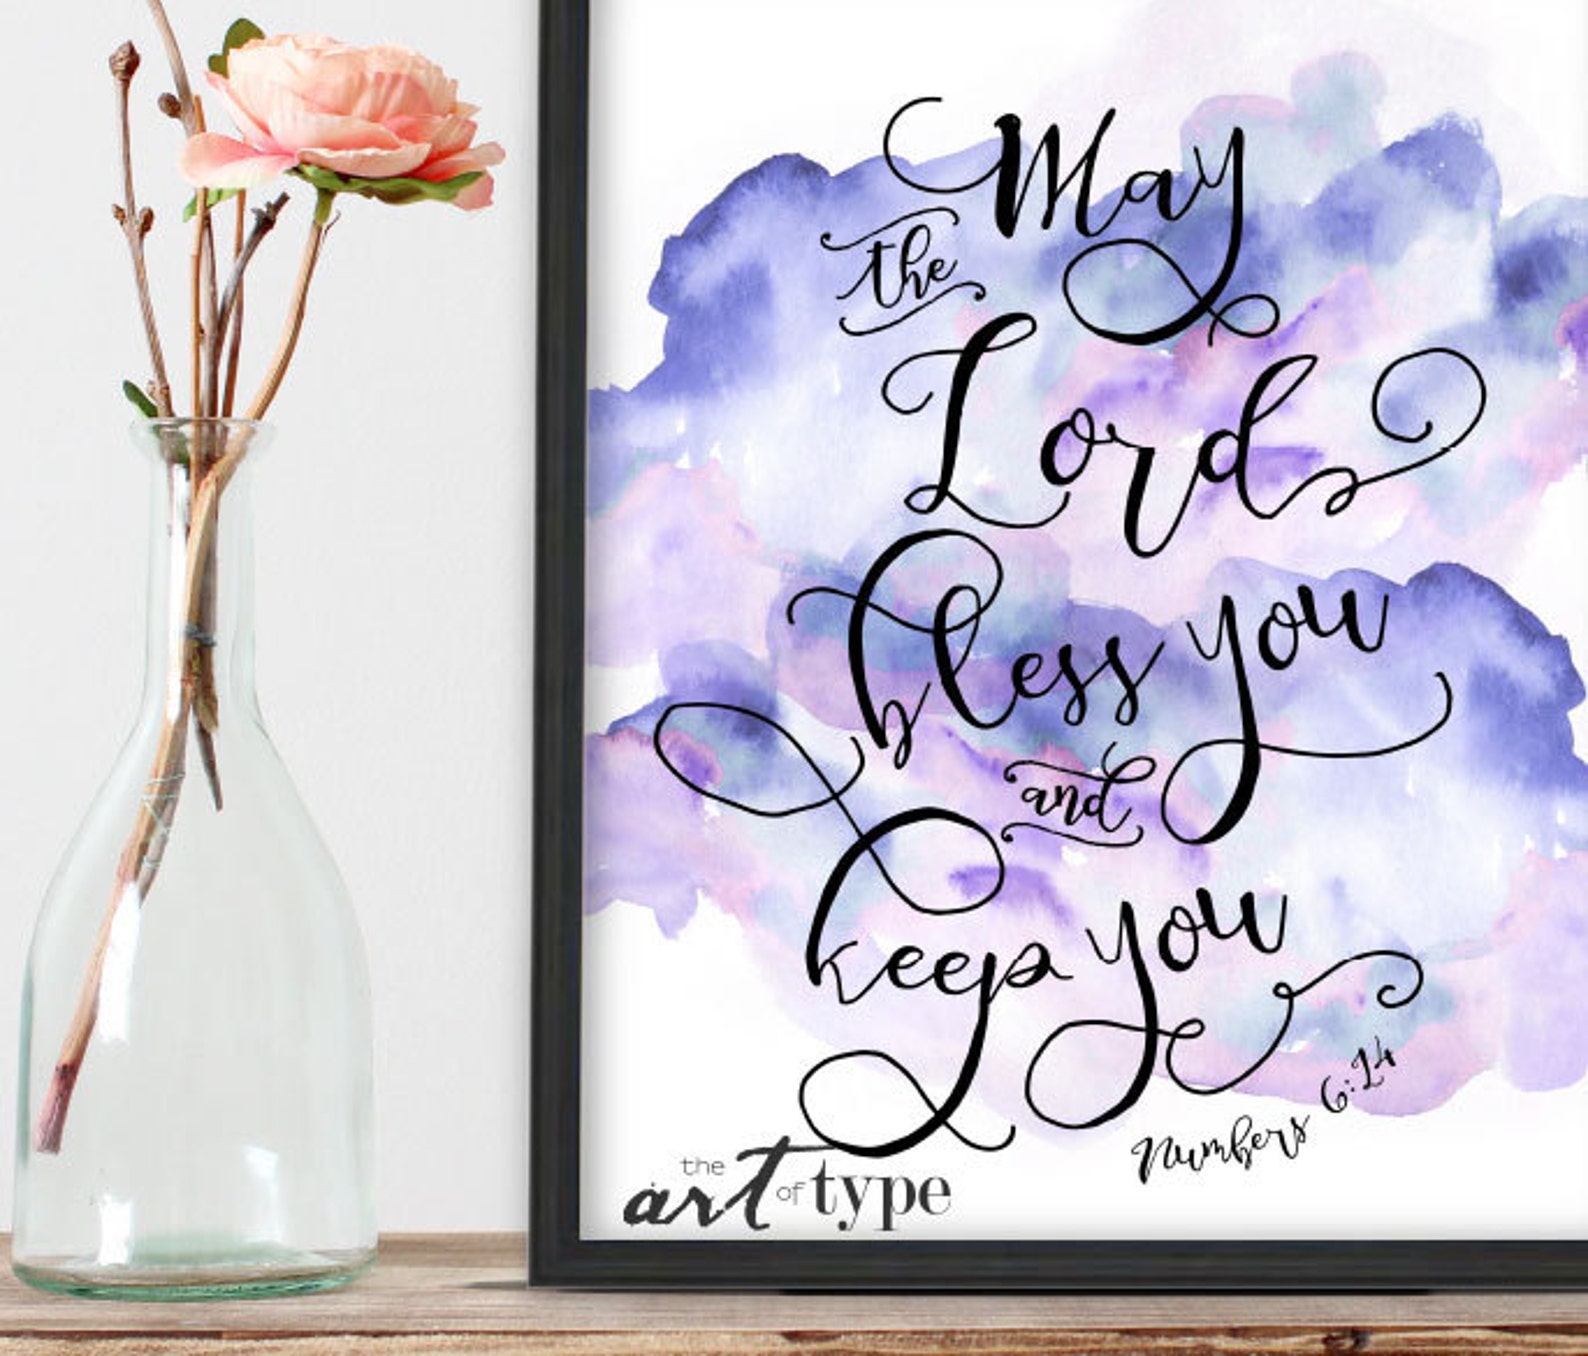 May
the
Lord
bless you
and
keep you
Numbers 6:24
the
art of type